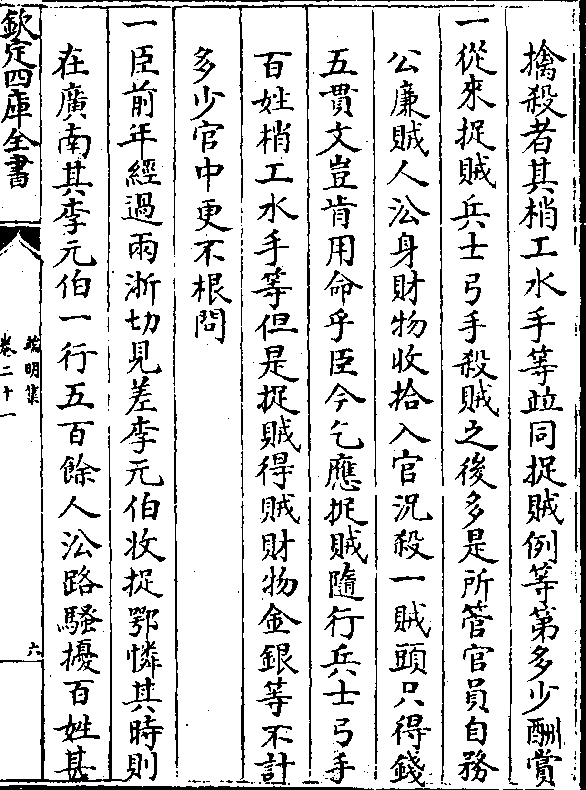 擒殺者其梢工水手等竝同捉賊例等第多少酬賞
一從來捉賊兵士弓手殺賊之後多是所管官員自務
公廉賊人㳂身財物收拾入官況殺一賊頭只得錢
五貫文豈肯用命乎臣今乞應捉賊隨行兵士弓手
百姓梢工水手等但是捉賊得賊財物金銀等不計
多少官中更不根問
一臣前年經過兩浙切見差李元伯收捉鄂憐其時則
在廣南其李元伯一行五百餘人㳂路騷擾百姓甚
欽定四庫全書
端明集
卷二十一
六